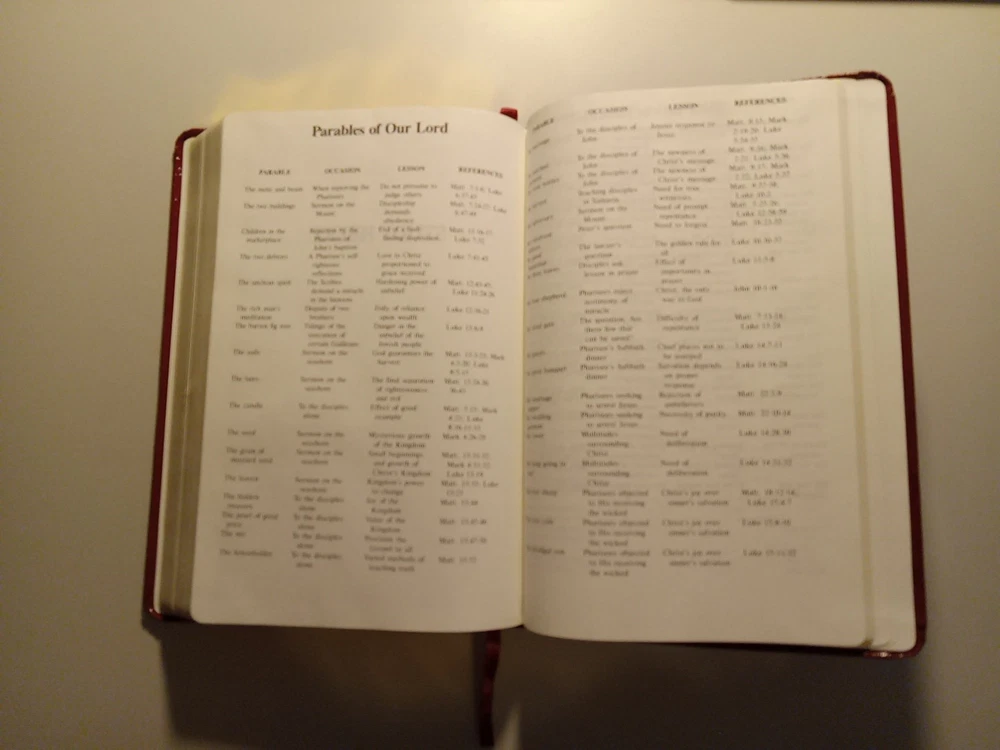 Parables of Our Lord
PARABLE OCCASION LESSON REFERENCES
The mote and beam When reproving the Do not presume to Matt. 7:1-6; Luke
Pharisees judge others 6:37-43
The two buildings Sermon on the Discipleship Matt. 7:24-27; Luke
Mount demands 6:47-49
obedience
Children in the Rejection by the Evil of a fault- Matt. 11:16-17;
marketplace Pharisees of finding disposition Luke 7:32
John's baptism
The two debtors A Pharisee's self Love to Christ Luke 7:41-43
righteous proportioned to
reflections grace received
The unclean spirit The Scribes Hardening power of Matt. 12:43-45;
demand a miracle unbelief Luke 11:24-26
in the heavens
The rich man's Dispute of two Folly of reliance Luke 12:16-21
meditation brothers upon wealth
The barren fig tree Tidings of the Danger in the Luke 13:6-9
execution of unbelief of the
certain Galileans Jewish people
The Sermon on the God guarantees the
seashore harvest
The tares Sermon on the The final separation Matt. 13:24-30
seashore of righteousness
and evil
The candle To the disciples Effect of good
alone example
The seed Sermon on the Mysterious growth Mark 4:26-29
seashore of the Kingdom
The grain of Sermon on the Small beginnings Matt. 13:31-32
mustard seed seashore and growth of Mark 4:31-32
Christ's Kingdom Luke 13:19
The leaven Sermon on the Kingdom's power Matt. 13:33; Luke
seashore to change 13:21
The hidden To the disciples Joy of the Matt. 13:44
treasure alone Kingdom
The pearl of good To the disciples Value of the Matt. 13:45-46
price alone Kingdom
The net To the disciples the Matt. 13:47-50
alone
The householder To the disciples Varied methods of Matt. 13:52
alone teaching truth
OCCASION LESSON REFERENCES
To the disciples of response to Matt. 9:15; Mark
John Jesus 2:19-20; Luke
To the disciples of The newness of Matt. 9:16; Mark
John Christ's message 2:21; Luke 5:36
To the disciples of The newness of Matt. 9:17; Mark
John Christ's message 2:22; Luke 5:37
Teaching disciples Need for true Matt. 9:37-38;
in Samaria witnesses Luke 10:2
Sermon on the Need of prompt Matt. 5:25-26;
Mount repentance Luke 12:58-59
Peter's question Need to forgive Matt. 18:23-35
The lawyer's The golden rule for Luke 10:30-37
question all
Disciples ask Effect of Luke 11:5-8
lesson in prayer importunity in
prayer
shepherd Pharisees reject Christ, the only John 10:1-16
testimony of way to God
miracle
The question, Are Difficulty of Matt. 7:13-14;
there few that repentance Luke 13:24
can be saved?
Pharisee's Sabbath Chief places not to Luke 14:7-11
dinner be usurped
Pharisee's Sabbath Salvation depends Luke 14:16-24
dinner on proper
response
Pharisees seeking Rejection of Matt. 22:2-9
to arrest Jesus
Pharisees seeking Necessity of purity Matt. 22:10-14
to arrest Jesus
Multitudes Need of Luke 14:28-30
surrounding deliberation
Christ
going to Multitudes Need of Luke 14:31-32
surrounding deliberation
Christ
Pharisees objected Christ's joy over Matt. 18:12-14;
to His receiving sinner's salvation Luke 15:4-7
the wicked
Pharisees objected Christ's joy over Luke 15:8-10
to His receiving sinner's salvation
the wicked
son Pharisees objected Christ's joy over Luke 15:11-32
to His receiving sinner's salvation
the wicked